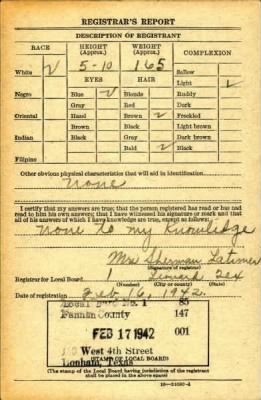 REGISTRAR'S REPORT
DESCRIPTION OF REGISTRANT
RACE HEIGHT (Approx.) WEIGHT (Approx.) COMPLEXION
White ✓ 5-10 165 Sallow
EYES HAIR Light ✓
Negro Blue ✓ Blonde Ruddy
Gray Red Dark
Oriental Hazel Brown ✓ Freckled
Brown Black Light brown
Indian Black Gray Dark brown
Bald ✓ Black
Filipino
Other obvious physical characteristics that will aid in identification
None
I certify that my answers are true; that the person registered has read or has had
read to him his own answers; that I have witnessed his signature or mark and that
all of his answers of which I have knowledge are true, except as follows:
None to my Knowledge
Mrs Sherman Latimer
(Signature of registrar)
Registrar for Local Board 1 Leonard Tex
(Number) (City or county) (State)
Date of registration Feb 16, 1942.
Local Board No. 1 85
Fannin County 147
FEB 17 1942 001
West 4th Street
Bonham, Texas
(STAMP OF LOCAL BOARD)
(The stamp of the Local Board having jurisdiction of the registrant
shall be placed in the above space)